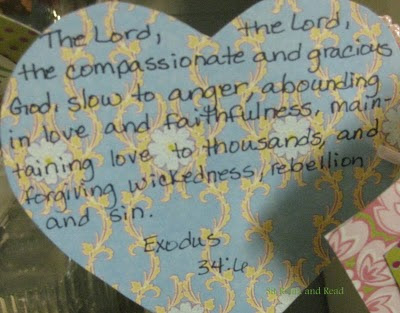 The Lord, the Lord,
the compassionate and gracious
God, slow to anger, abounding
in love and faithfulness, main-
taining love to thousands, and
forgiving wickedness, rebellion
and sin.
Exodus
34:6
and Read